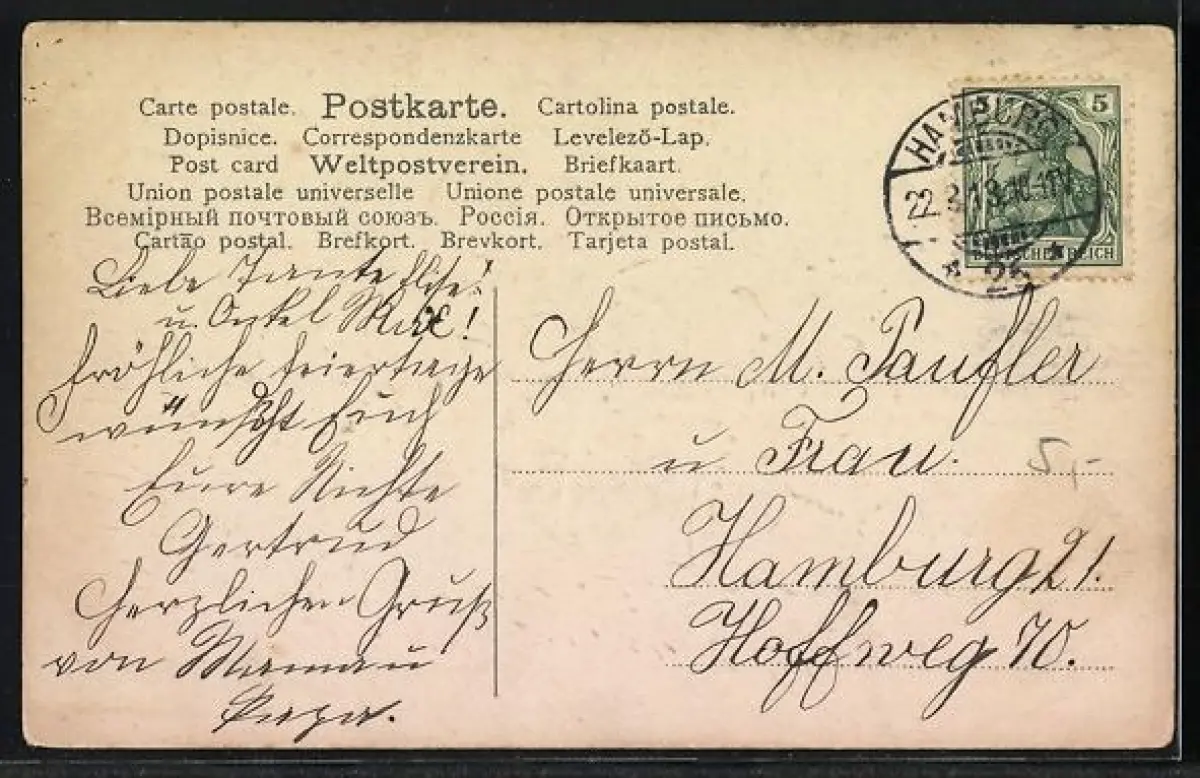 Carte postale. Postkarte. Cartolina postale.
Dopisnice. Correspondenzkarte Levelező-Lap.
Post card Weltpostverein. Briefkaart.
Union postale universelle Unione postale universale.
Всемірный почтовый союзъ. Россія. Открытое письмо.
Cartão postal. Brefkort. Brevkort. Tarjeta postal.
5
DEUTSCHES REICH
HAMBURG
22. 3. 13. 10-11V.
* 25 *
Liebe Tante Elise!
u. Onkel Max!
Fröhliche Feiertage
wünscht Euch
Eure Nichte
Gertrud
Herzlichen Gruß
von Mama u
Papa.
Herrn M. Paufler
u Frau.
Hamburg 21.
Hoffweg 70.
5,-